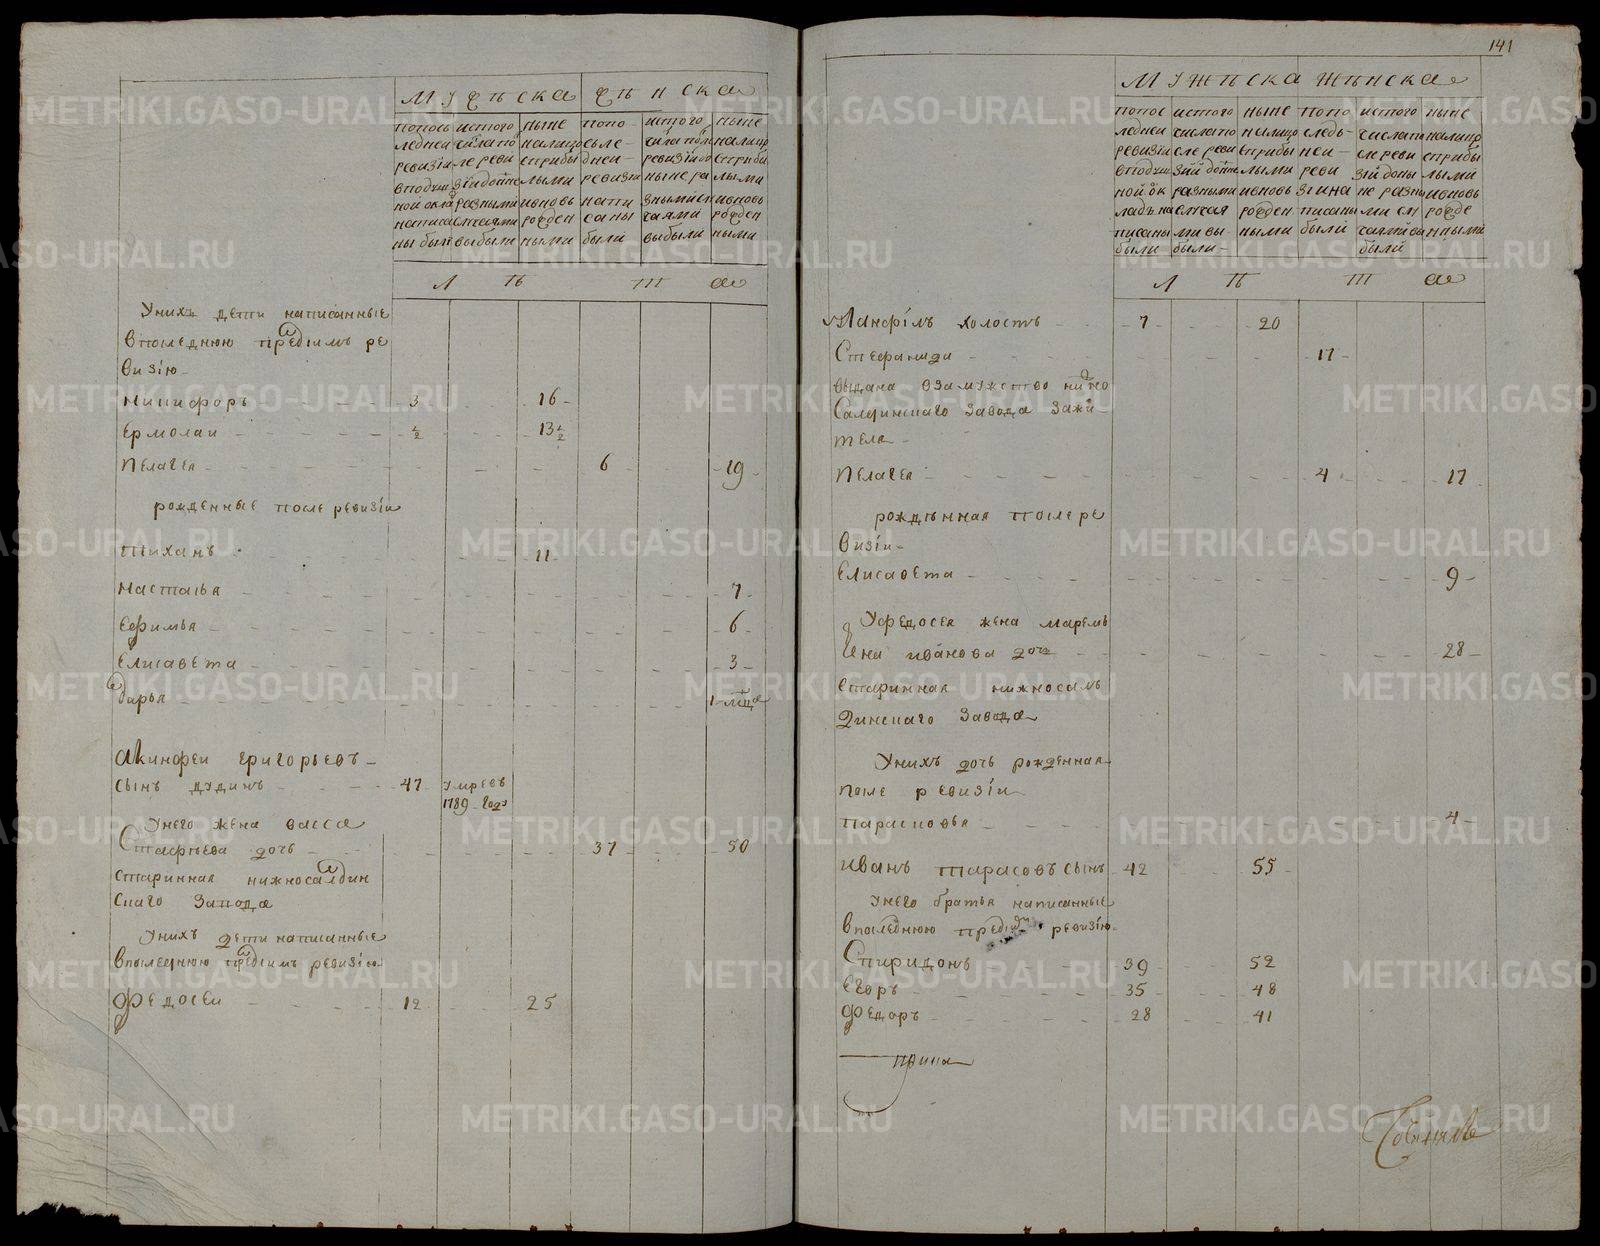 мужъска женска
попосъ
ледней
ревизіи
вподуш
ной окла
написа
ны были
истого
числа по
сле реви
зіи доне
разными
случаями
выбыли
ныне
налицо
сприбы
лыми
ивновь
рожден
ными
попо
сле
дней
ревизіи
напи
саны
были
истого
числа по
ревизіи до
ныне ра
зными сл
чаями
выбыли
ныне
налицо
сприбы
лыми
ивновь
рожден
ными
л ѣ т а
Уних дети написанные
впоследнюю предъимъ ре
визію
Никифоръ 3 16
Ермолаи ½ 13½
Пелагея 6 19
рожденные после ревизіи
Тиханъ 11
Настасья 7
Ефимья 6
Елисавета 3
Дарья 1 мца
Акинфеи Григорьевъ
сынъ дудинъ 47 умреве
1789 году
Унего жена васса
Стафѣева дочь 37 50
старинная нижносалдин
скаго завода
Унихъ дети написанные
впоследнюю предъимъ ревизію
Федосеи 12 25
141
мужъска женска
попос
ледней
ревизіи
вподуш
ной ок
ладъ на
писаны
были
истого
числа по
сле реви
зіи доне
разными
случая
ми вы
были
ныне
налицо
сприбы
лыми
ивновь
рожден
ными
попо
следъ
ней
реви
зіи на
писаны
были
истого
числа по
сле реви
зіи доны
не разны
ми сл
чаями вы
были
ныне
налицо
сприбы
лыми
ивновь
рожде
нными
л ѣ т а
Панфілъ холостъ 7 20
Стефанида 17
выдана взамужство нижно
Салдинскаго завода зажи
теля
Пелагея 4 17
рожденная после ре
визіи
Елисавета 9
Уфедосея жена марем
яна иванова дочь 28
старинная нижносал
динскаго завода
Унихъ дочь рожденная
после ревизіи
парасковья 4
Иванъ тарасовъ сынъ 42 55
Унего братья написанные
впоследнюю предъ ревизію
Спиридонъ 39 52
Егоръ 35 48
Федоръ 28 41